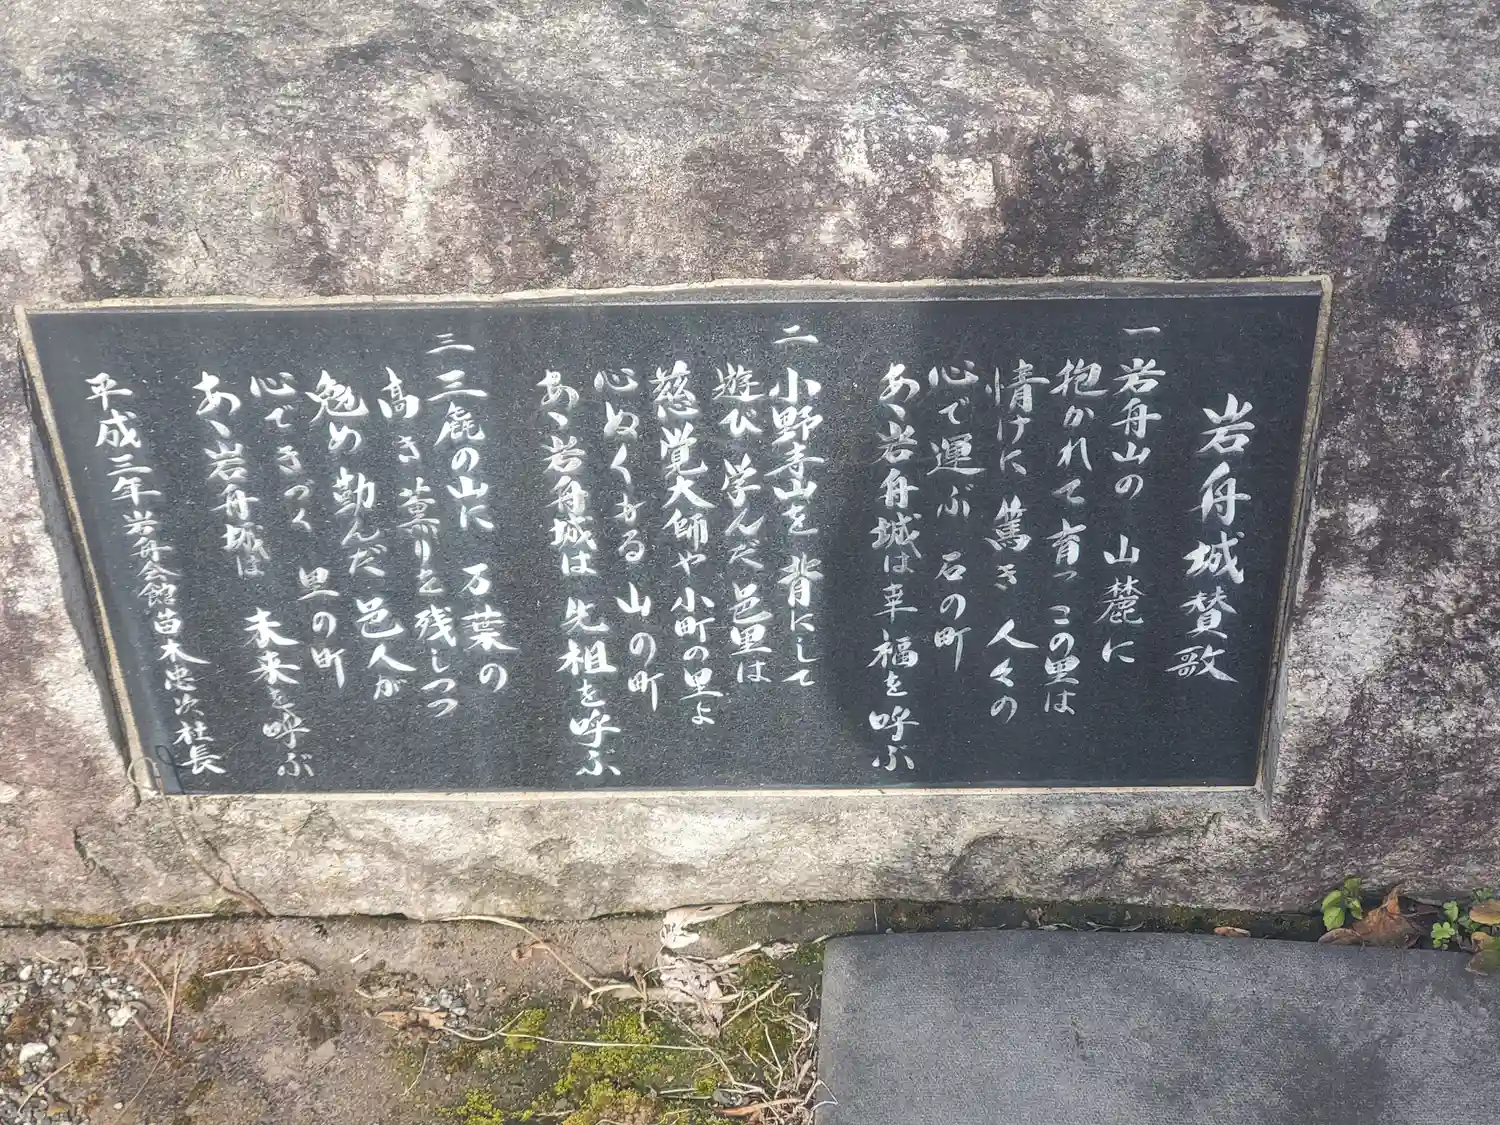 岩舟城賛歌
一 岩舟山の 山麓に
抱かれて育つ この里は
情けに 篤き 人々の
心で運ぶ 石の町
あゝ岩舟城は幸福を呼ぶ
二 小野寺山を 背にして
遊び 学んだ 邑里は
慈覚大師や 小町の里よ
心ぬくもる 山の町
あゝ岩舟城は 先祖を呼ぶ
三 三毳の山に 万葉の
高き 薫りを 残しつつ
勉め 勤んだ 邑人が
心できづく 里の町
あゝ岩舟城は 未来を呼ぶ
平成三年 岩舟会館 苗木忠次社長